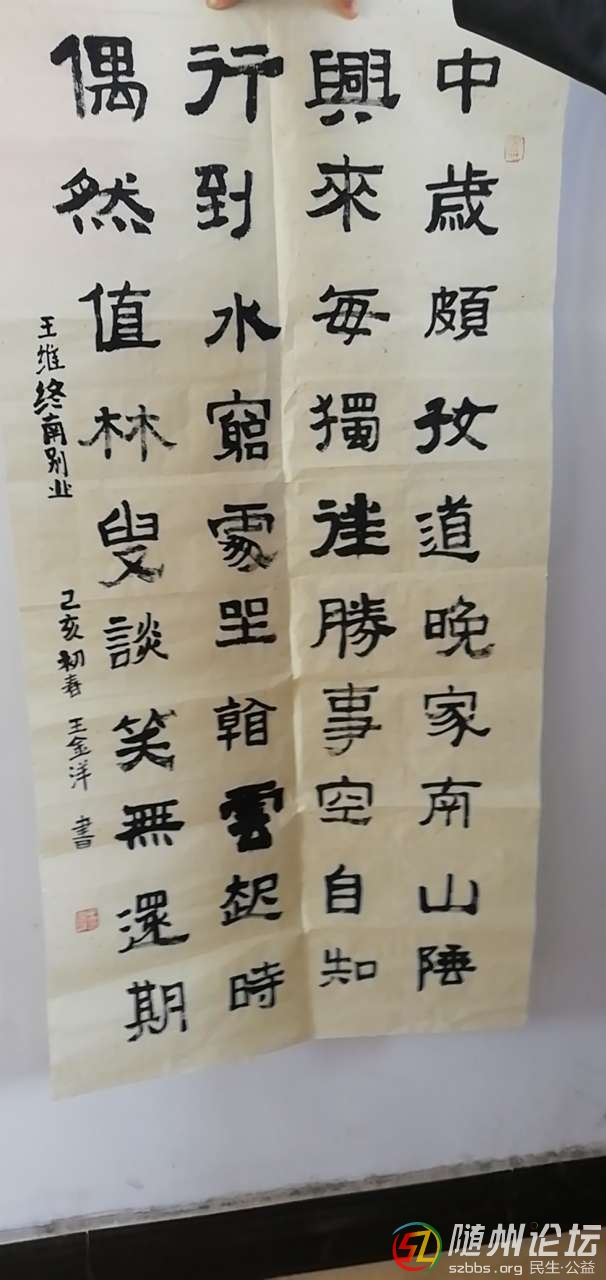 中歲頗好道晚家南山陲
興來每獨往勝事空自知
行到水窮處坐看雲起時
偶然值林叟談笑無還期
王維终南别业
己亥初春 王金洋 書
随州论坛
szbbs.org 民生·公益